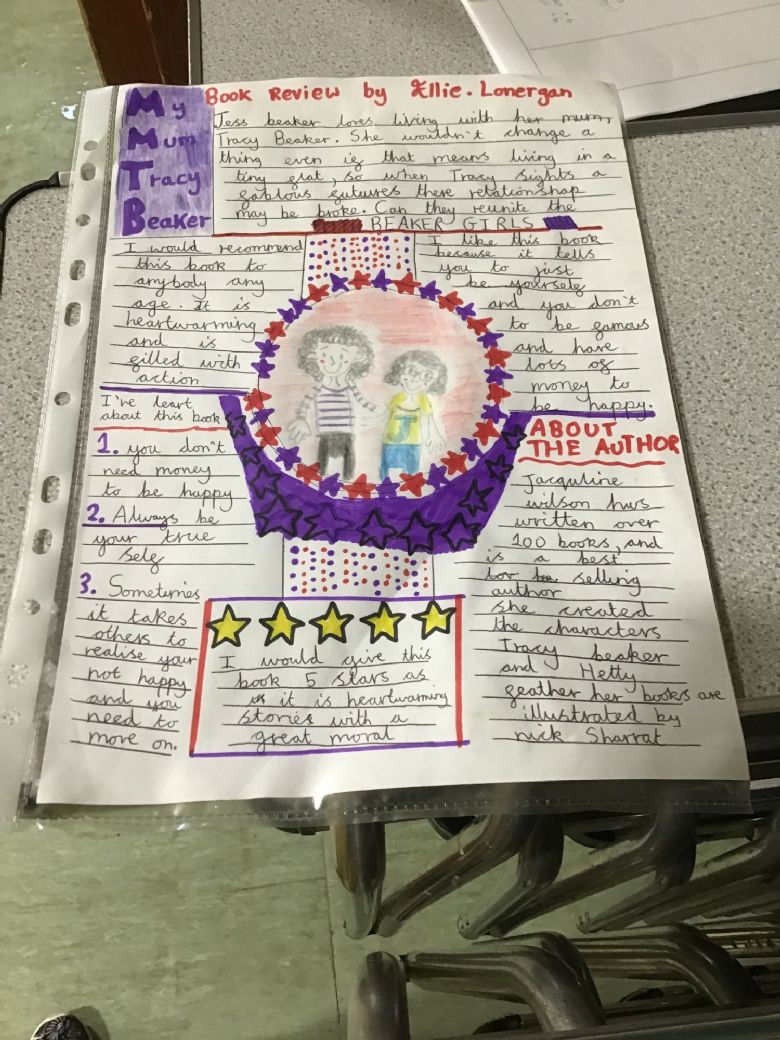 My
Mum
Tracy
Beaker
Book Review by Ellie. Lonergan
Jess beaker loves living with her mum,
Tracy Beaker. She wouldn't change a
thing even if that means living in a
tiny flat, so when Tracy sights a
fablous futures there relationshap
may be broke. Can they reunite the
BEAKER GIRLS
I would recommend
this book to
anybody any
age. It is
heartwarming
and is
filled with
action
I like this book
because it tells
you to just
be yourself
and you don't
to be famous
and have
lots of
money to
be happy.
I've leart
about this book
1. you don't
need money
to be happy
2. Always be
your true
self
3. Sometimes
it takes
others to
realise your
not happy
and you
need to
more on.
J
I would give this
book 5 stars as
it is heartwarming
stories with a
great moral
ABOUT
THE AUTHOR
Jacquline
wilson hws
written over
100 books, and
is a best
selling
author
she created
the characters
Tracy beaker
and Hetty
feather her books are
illustrated by
nick Sharrat